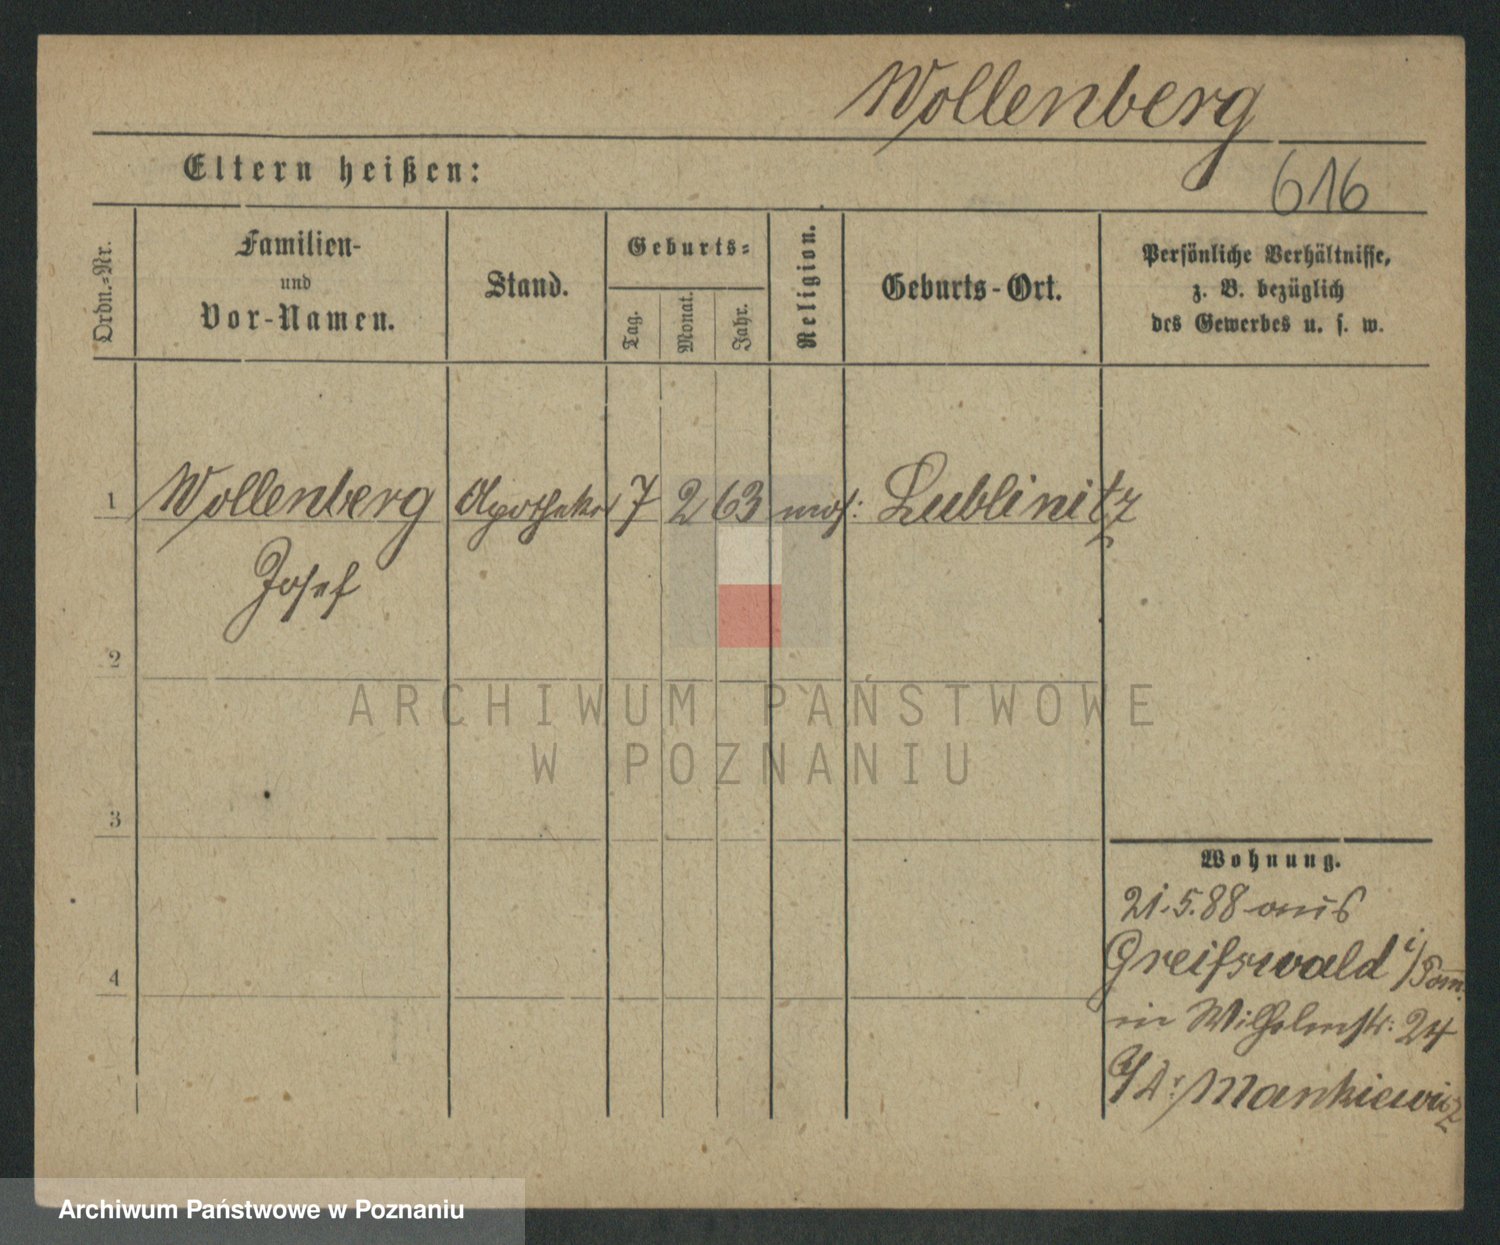 Wollenberg
616
Eltern heißen:
Ordn.-Nr.
Familien-
und
Vor-Namen.
Stand.
Geburts-
Tag.
Monat.
Jahr.
Religion.
Geburts-Ort.
Persönliche Verhältnisse,
z. B. bezüglich
des Gewerbes u. s. w.
1 Wollenberg Apotheker 7 2 63 mos: Lublinitz
Josef
2
3
4
Wohnung.
21.5.88 aus
Greifswald i/Pom.
in Wilhelmstr: 24
Mankiewicz
ARCHIWUM PAŃSTWOWE
W POZNANIU
Archiwum Państwowe w Poznaniu